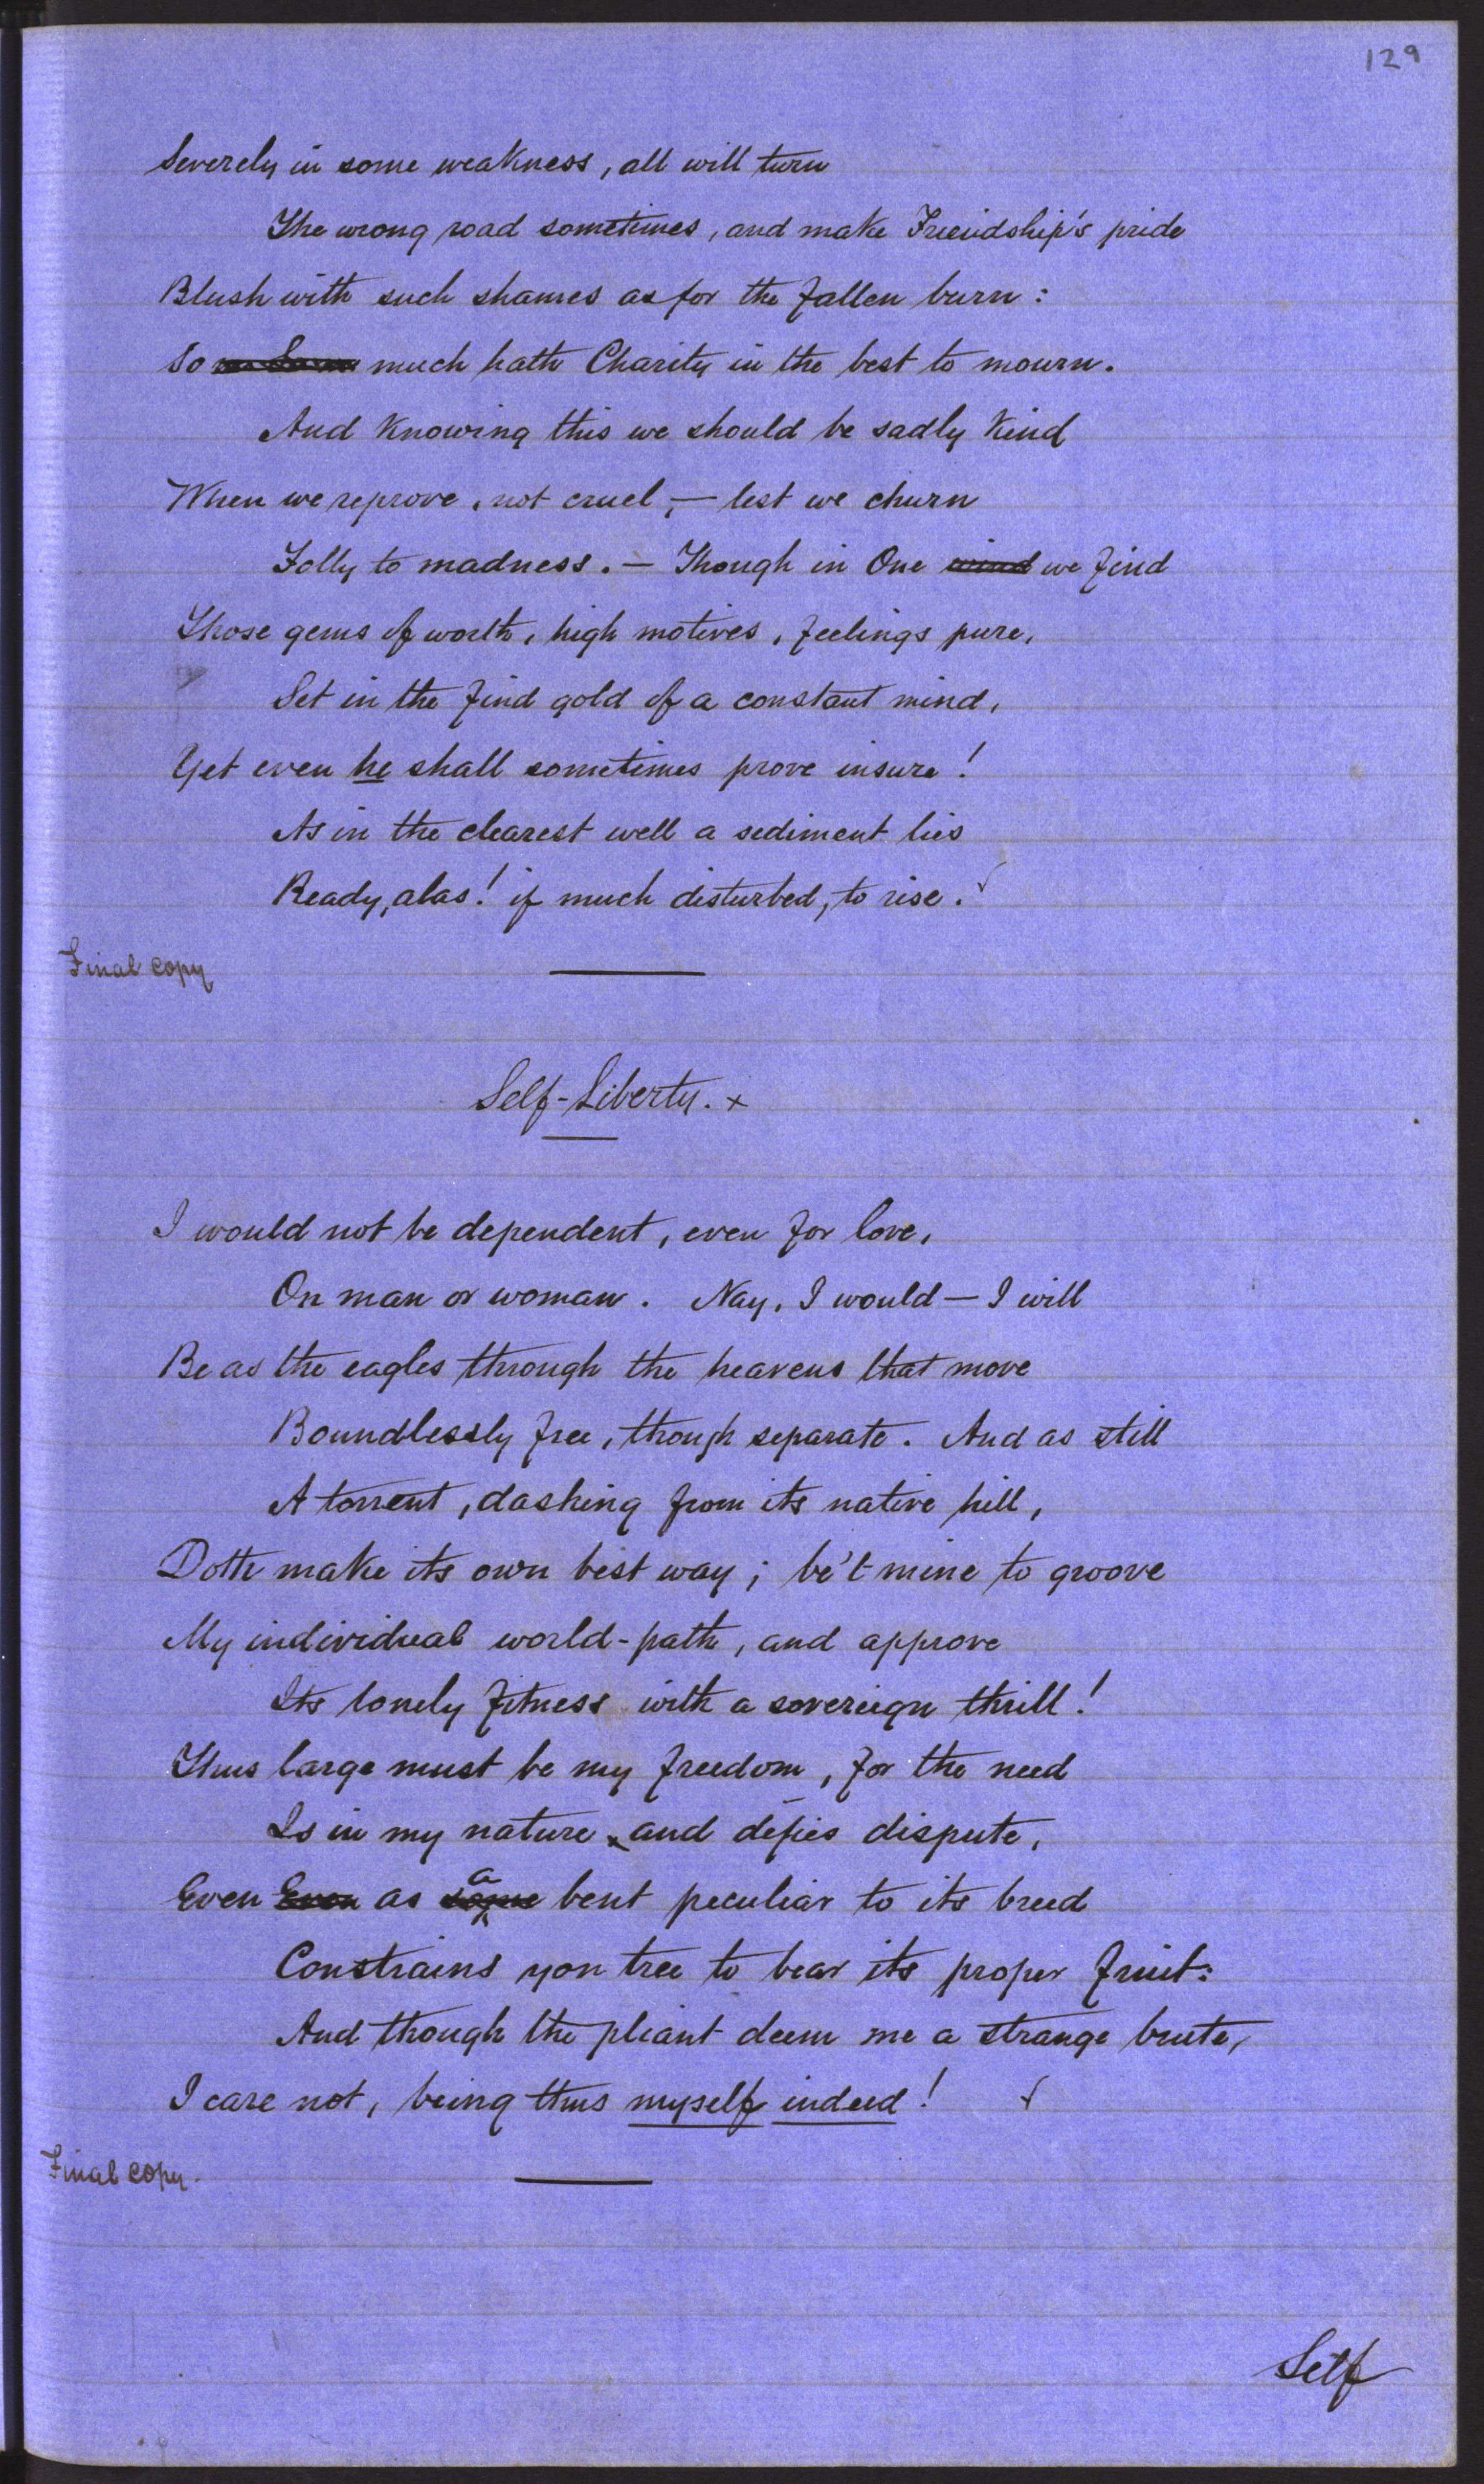 129
Severely in some weakness, all will turn
The wrong road sometimes, and make Friendship's pride
Blush with such shames as for the fallen burn:
So much hath Charity in the best to mourn.
And knowing this we should be sadly kind
When we reprove, not cruel, — lest we churn
Folly to madness. — Though in One mind we find
Those gems of worth, high motives, feelings pure,
Set in the find gold of a constant mind,
Yet even he shall sometimes prove insure!
As in the clearest well a sediment lies
Ready, alas! if much disturbed, to rise. ✓
Final copy
Self-Liberty. x
I would not be dependent, even for love,
On man or woman. Nay, I would — I will
Be as the eagles through the heavens that move
Boundlessly free, though separate. And as still
A torrent, dashing from its native hill,
Doth make its own best way; be't mine to groove
My individual world-path, and approve
Its lonely fitness with a sovereign thrill!
Thus large must be my freedom, for the need
Is in my nature, and defies dispute,
Even Even as some a bent peculiar to its breed
Constrains yon tree to bear its proper fruit:
And though the pliant deem me a strange brute,
I care not, being thus myself indeed! ✓
Final copy.
Self